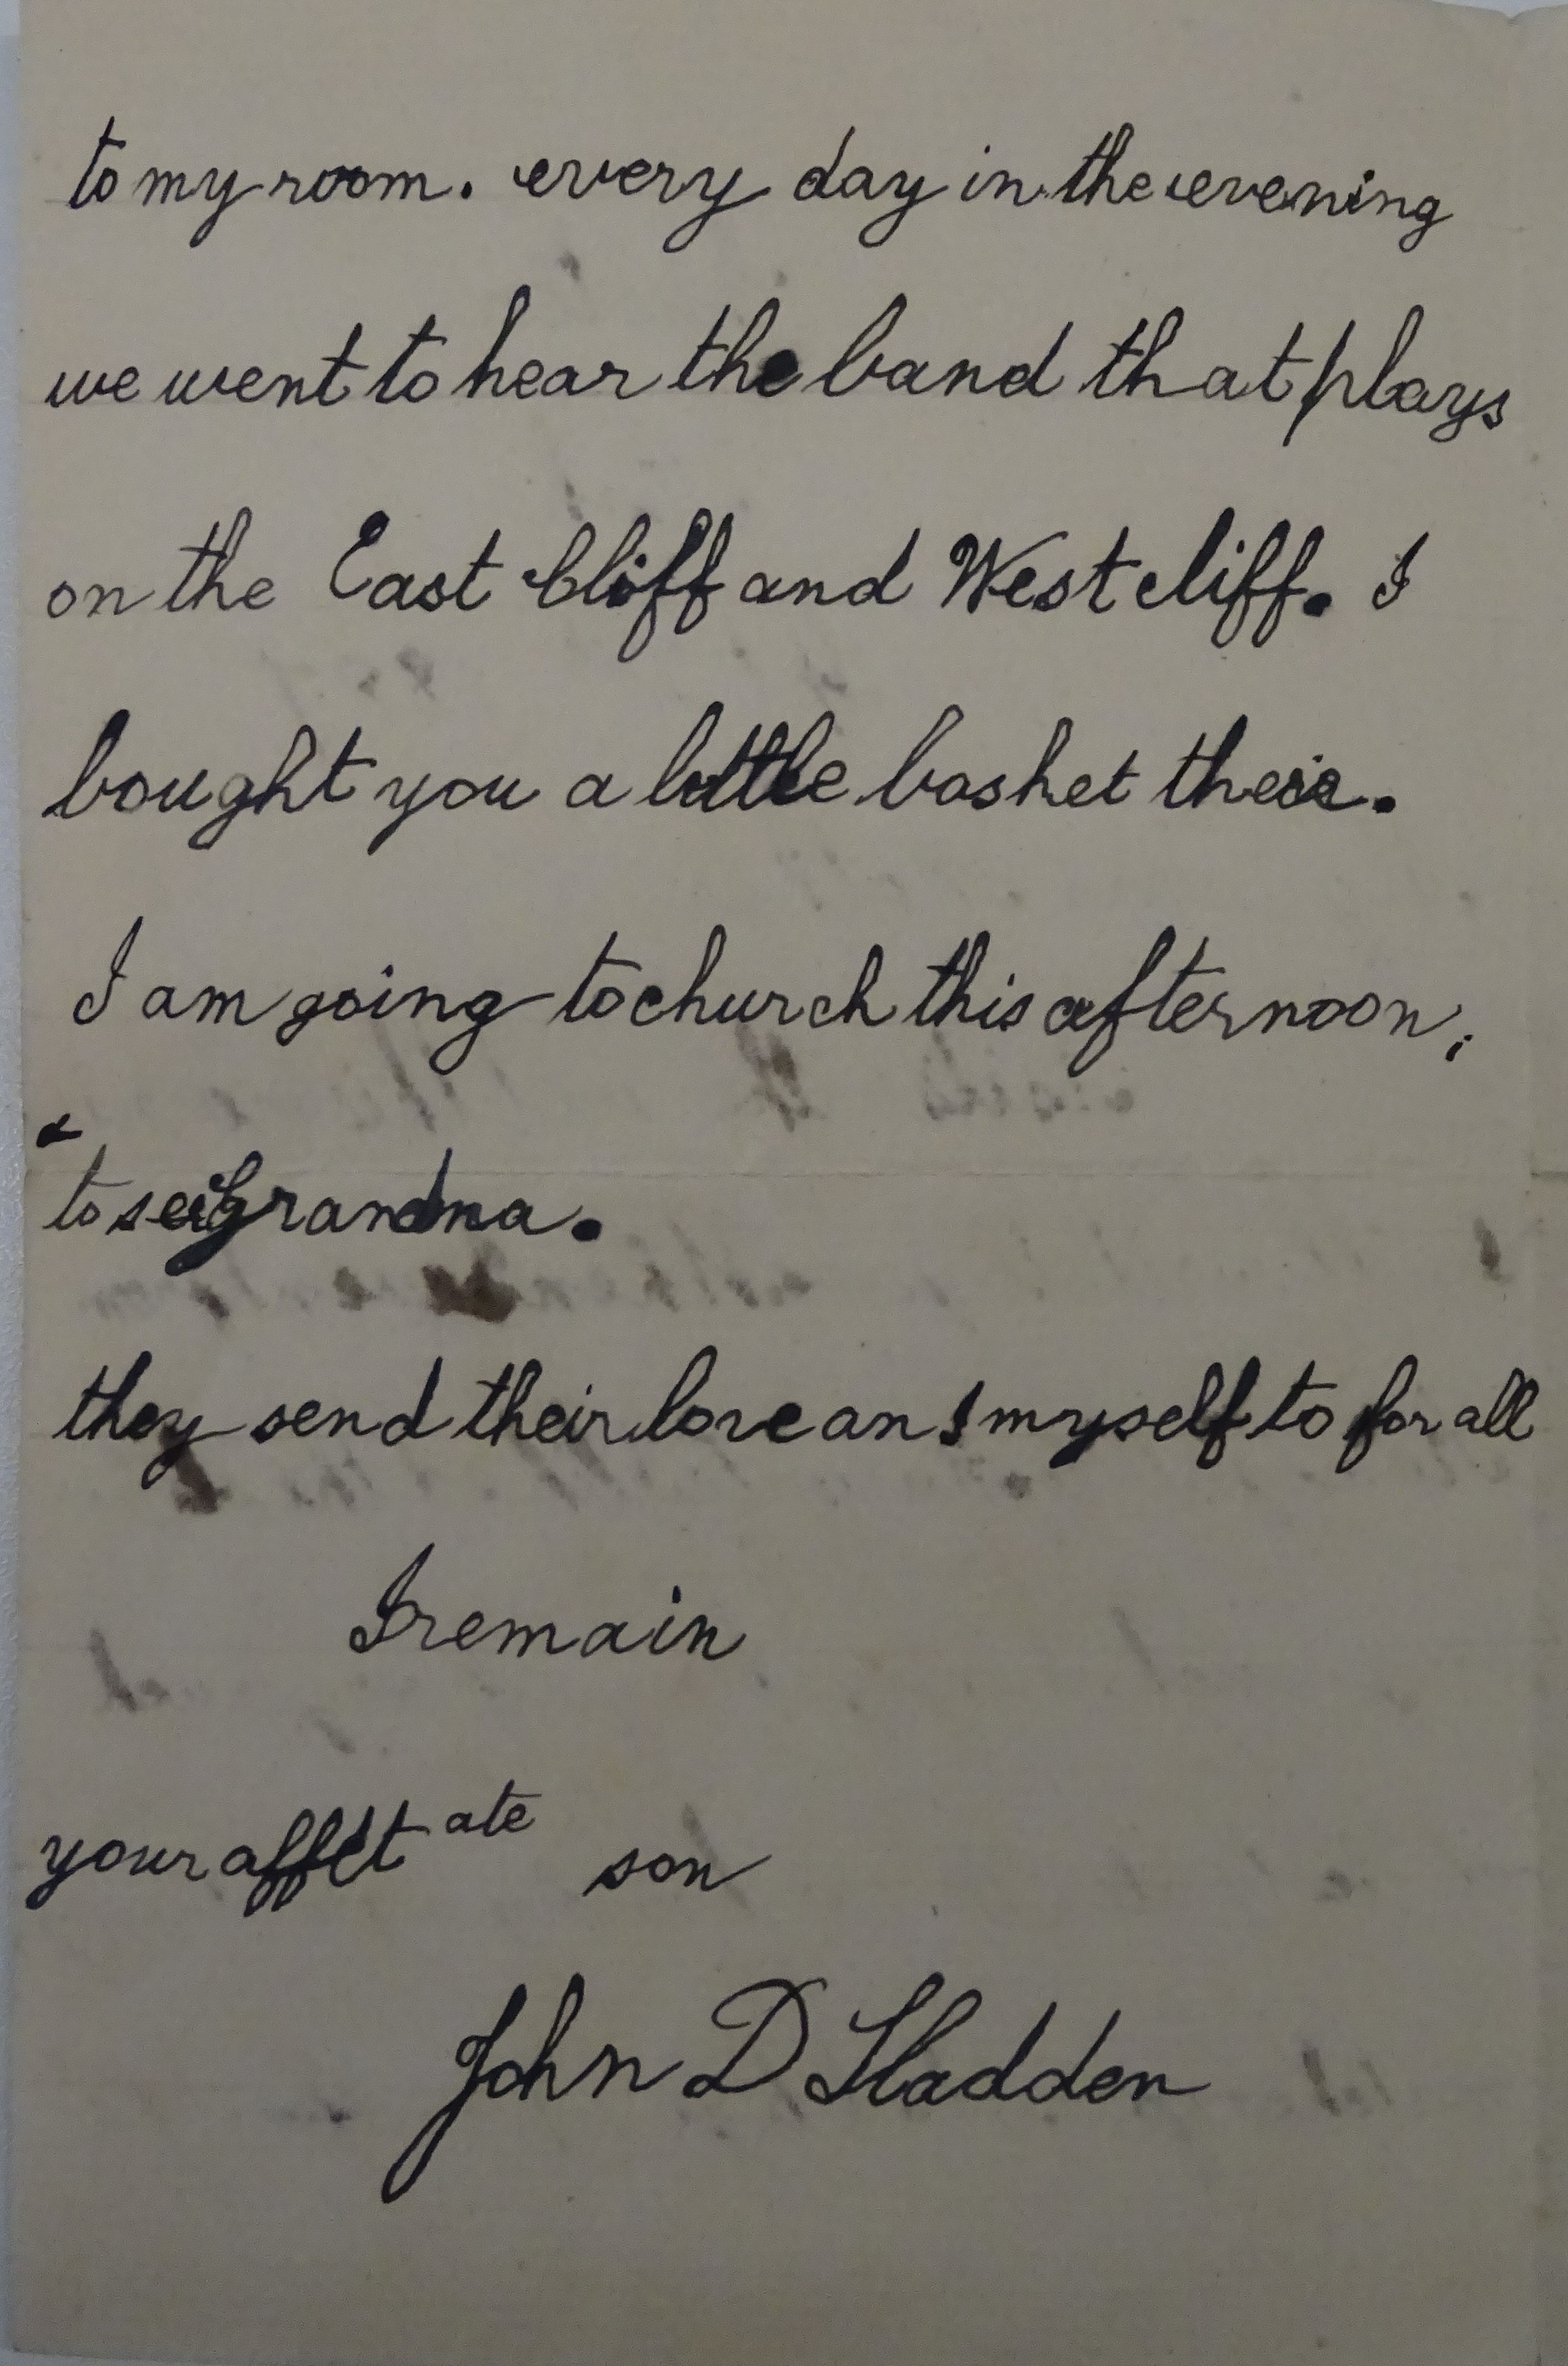 to my room. every day in the evening
we went to hear the band that plays
on the East Cliff and West cliff. I
bought you a little basket there.
I am going to church this afternoon,
&
to see Grandma.
they send their love and myself to for all
I remain
your affct ate son
John D Hadden